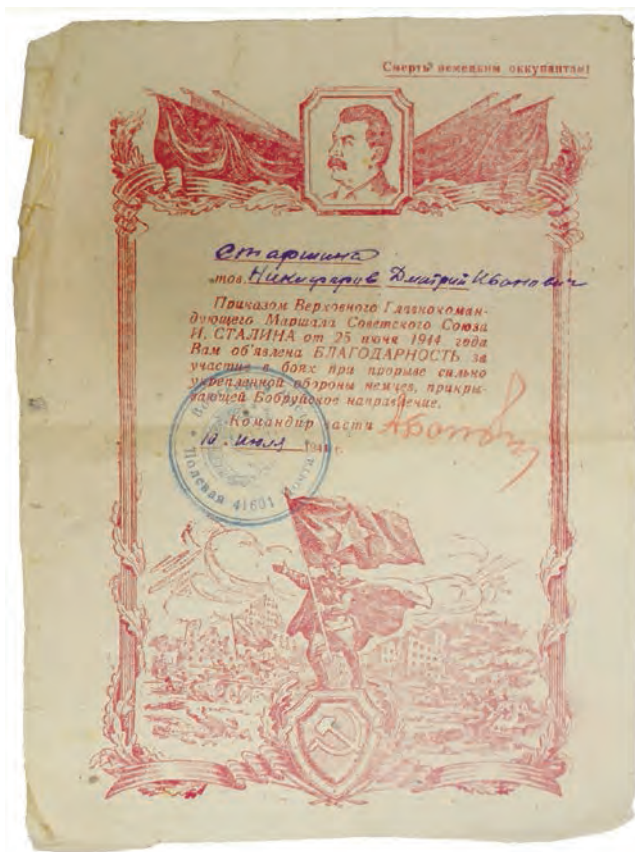 Смерть немецким оккупантам!
Старшина
тов. Никифоров Дмитрий Иванович
Приказом Верховного Главнокоман-
дующего Маршала Советского Союза
И. СТАЛИНА от 25 июня 1944 года
Вам об'явлена БЛАГОДАРНОСТЬ за
участие в боях при прорыве сильно
укрепленной обороны немцев, прикры-
вающей Бобруйское направление.
Командир части
10. июля 1944 г.
Полевая 41601 Почта